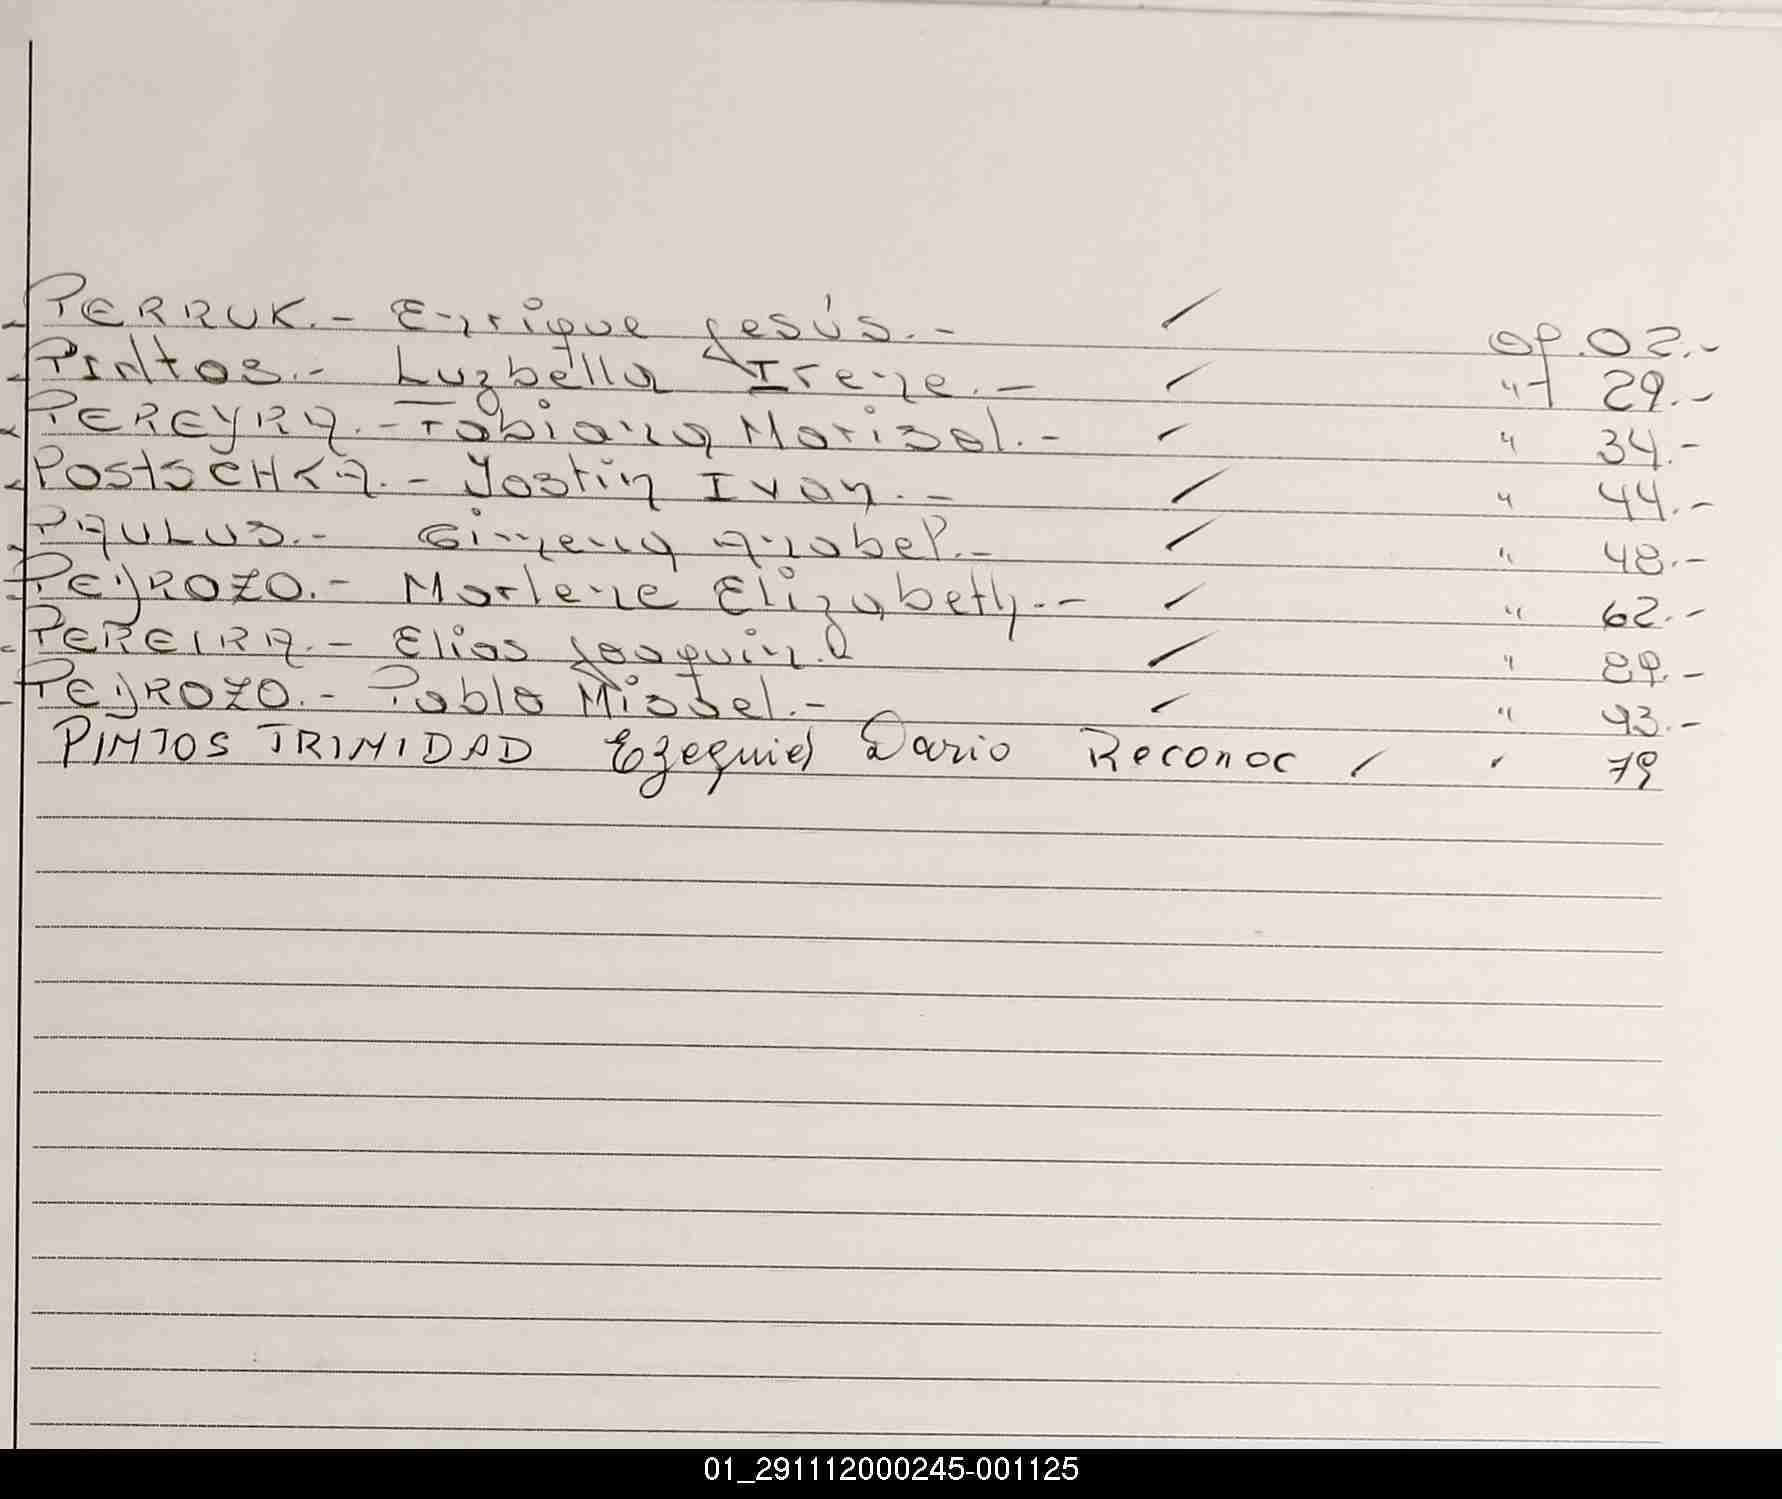 PERRUK.- Enrique Jesús.- / of. 02.-
PINtos.- Luzbella Irene.- / " 29.-
PEREYRA.- Fabiana Marisol.- / " 34.-
POSTSCHKA.- Yostin Ivan.- / " 44.-
PAULUS.- Gimena Anabel.- / " 48.-
PEDROZO.- Marlene Elizabeth.- / " 62.-
PEREIRA.- Elias Joaquin.- / " 89.-
PEDROZO.- Pablo Misael.- / " 93.-
PINTOS TRINIDAD Ezequiel Dario Reconoc / " 79
01_291112000245-001125